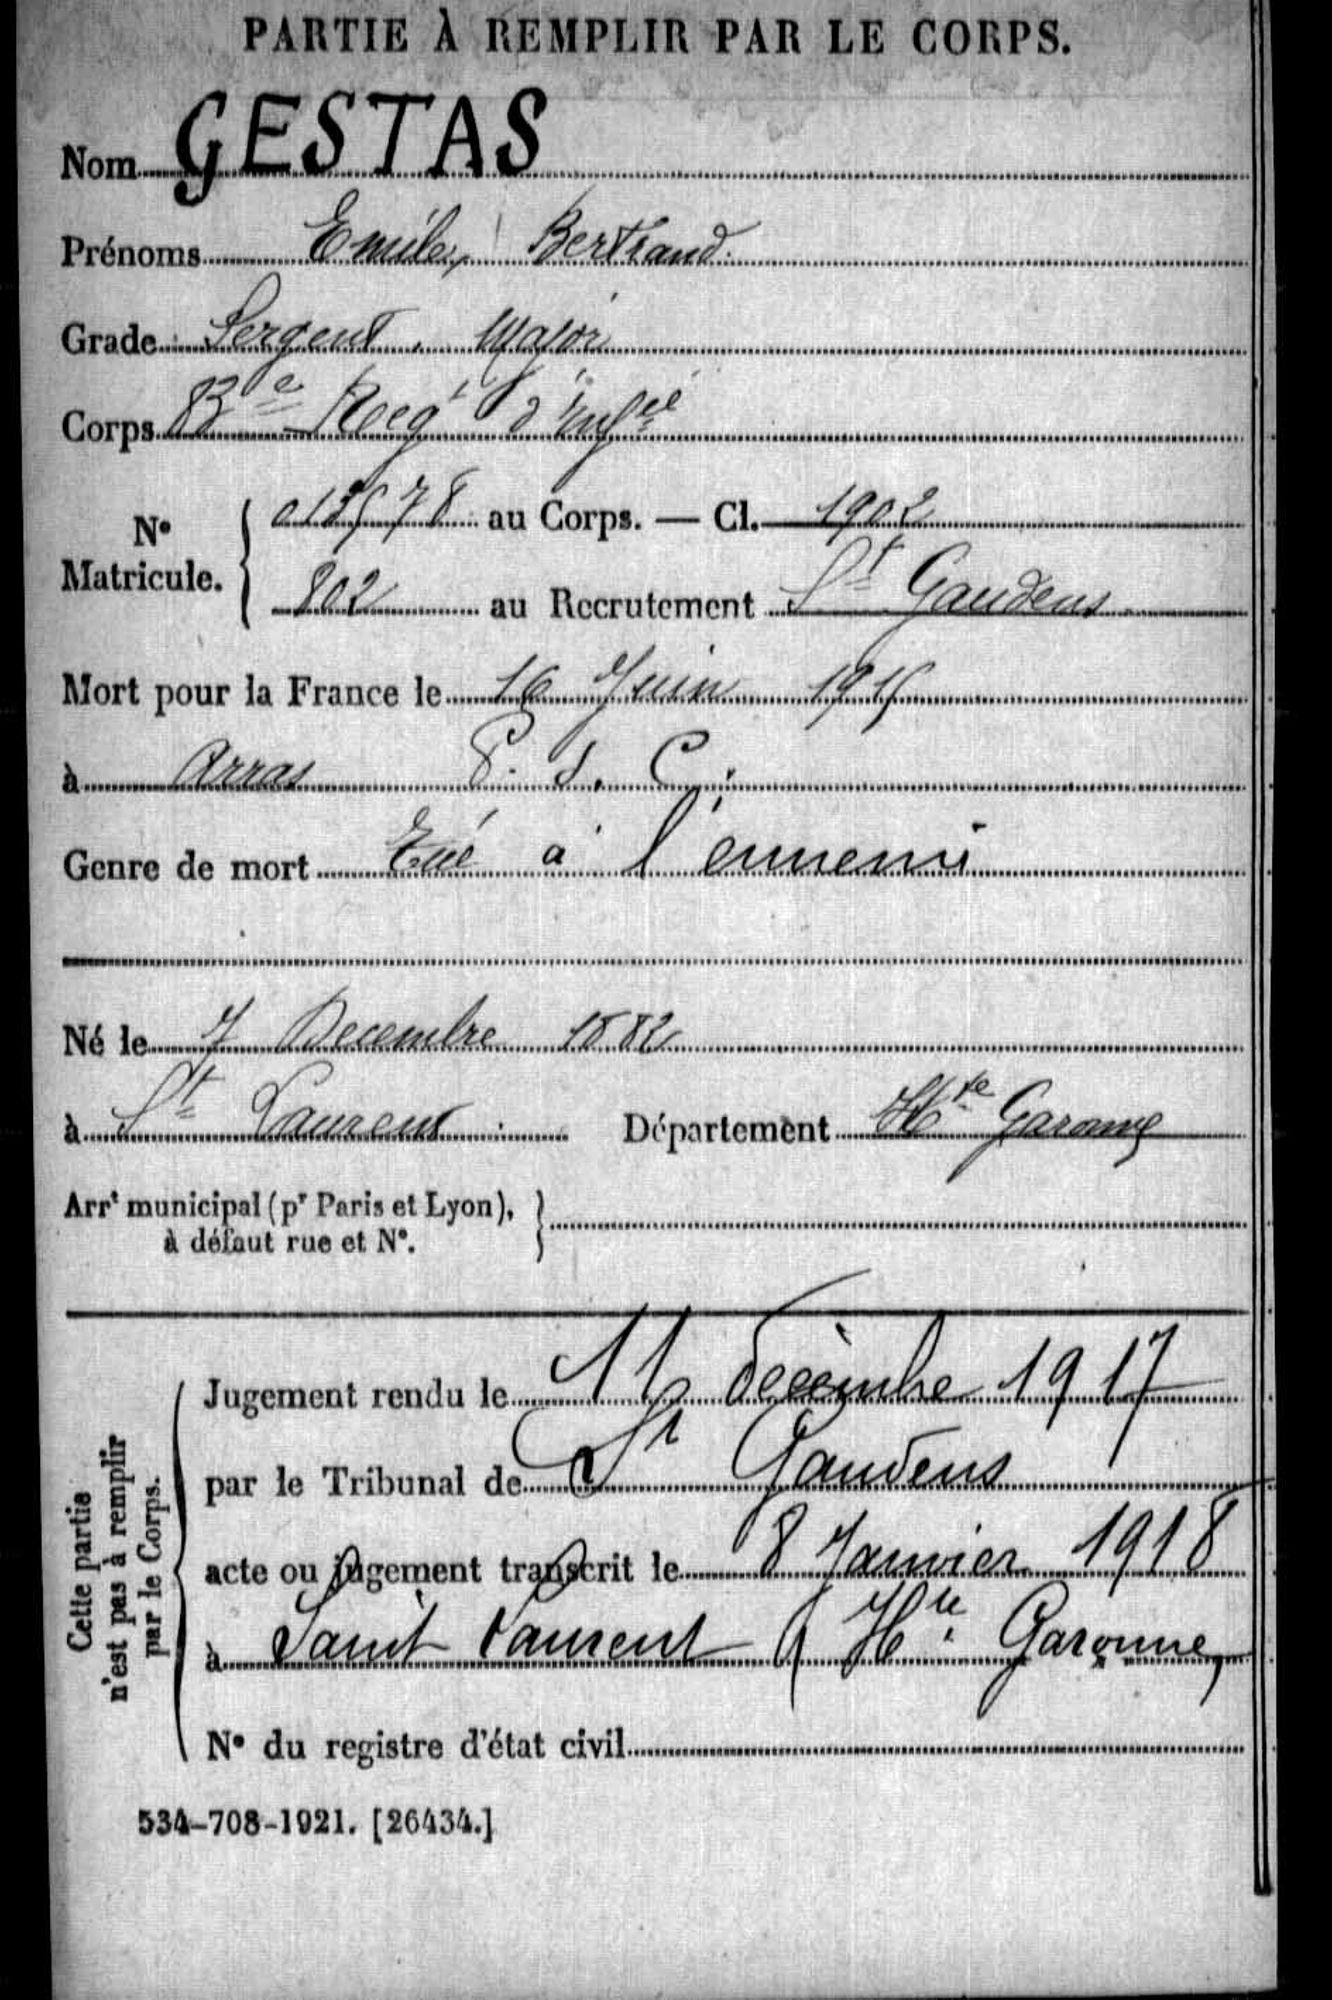 PARTIE À REMPLIR PAR LE CORPS.
Nom GESTAS
Prénoms Emile, Bertrand.
Grade Sergent. Major
Corps 83e Reg' d'Infie
N° Matricule. { 013578 au Corps. — Cl. 1902
802 au Recrutement St Gaudens
Mort pour la France le 16 Juin 1915
à Arras P. d. C.
Genre de mort Tué à l'ennemi
Né le 7 Decembre 1882
à St Laurent. Département Hte Garonne
Arrt municipal (pr Paris et Lyon),
à défaut rue et N°.
Cette partie
n'est pas à remplir
par le Corps.
Jugement rendu le décembre 1917
par le Tribunal de St Gaudens
acte ou jugement transcrit le 8 Janvier 1918
à Saint Laurent (Hte Garonne,
N° du registre d'état civil
534-708-1921. [26434.]